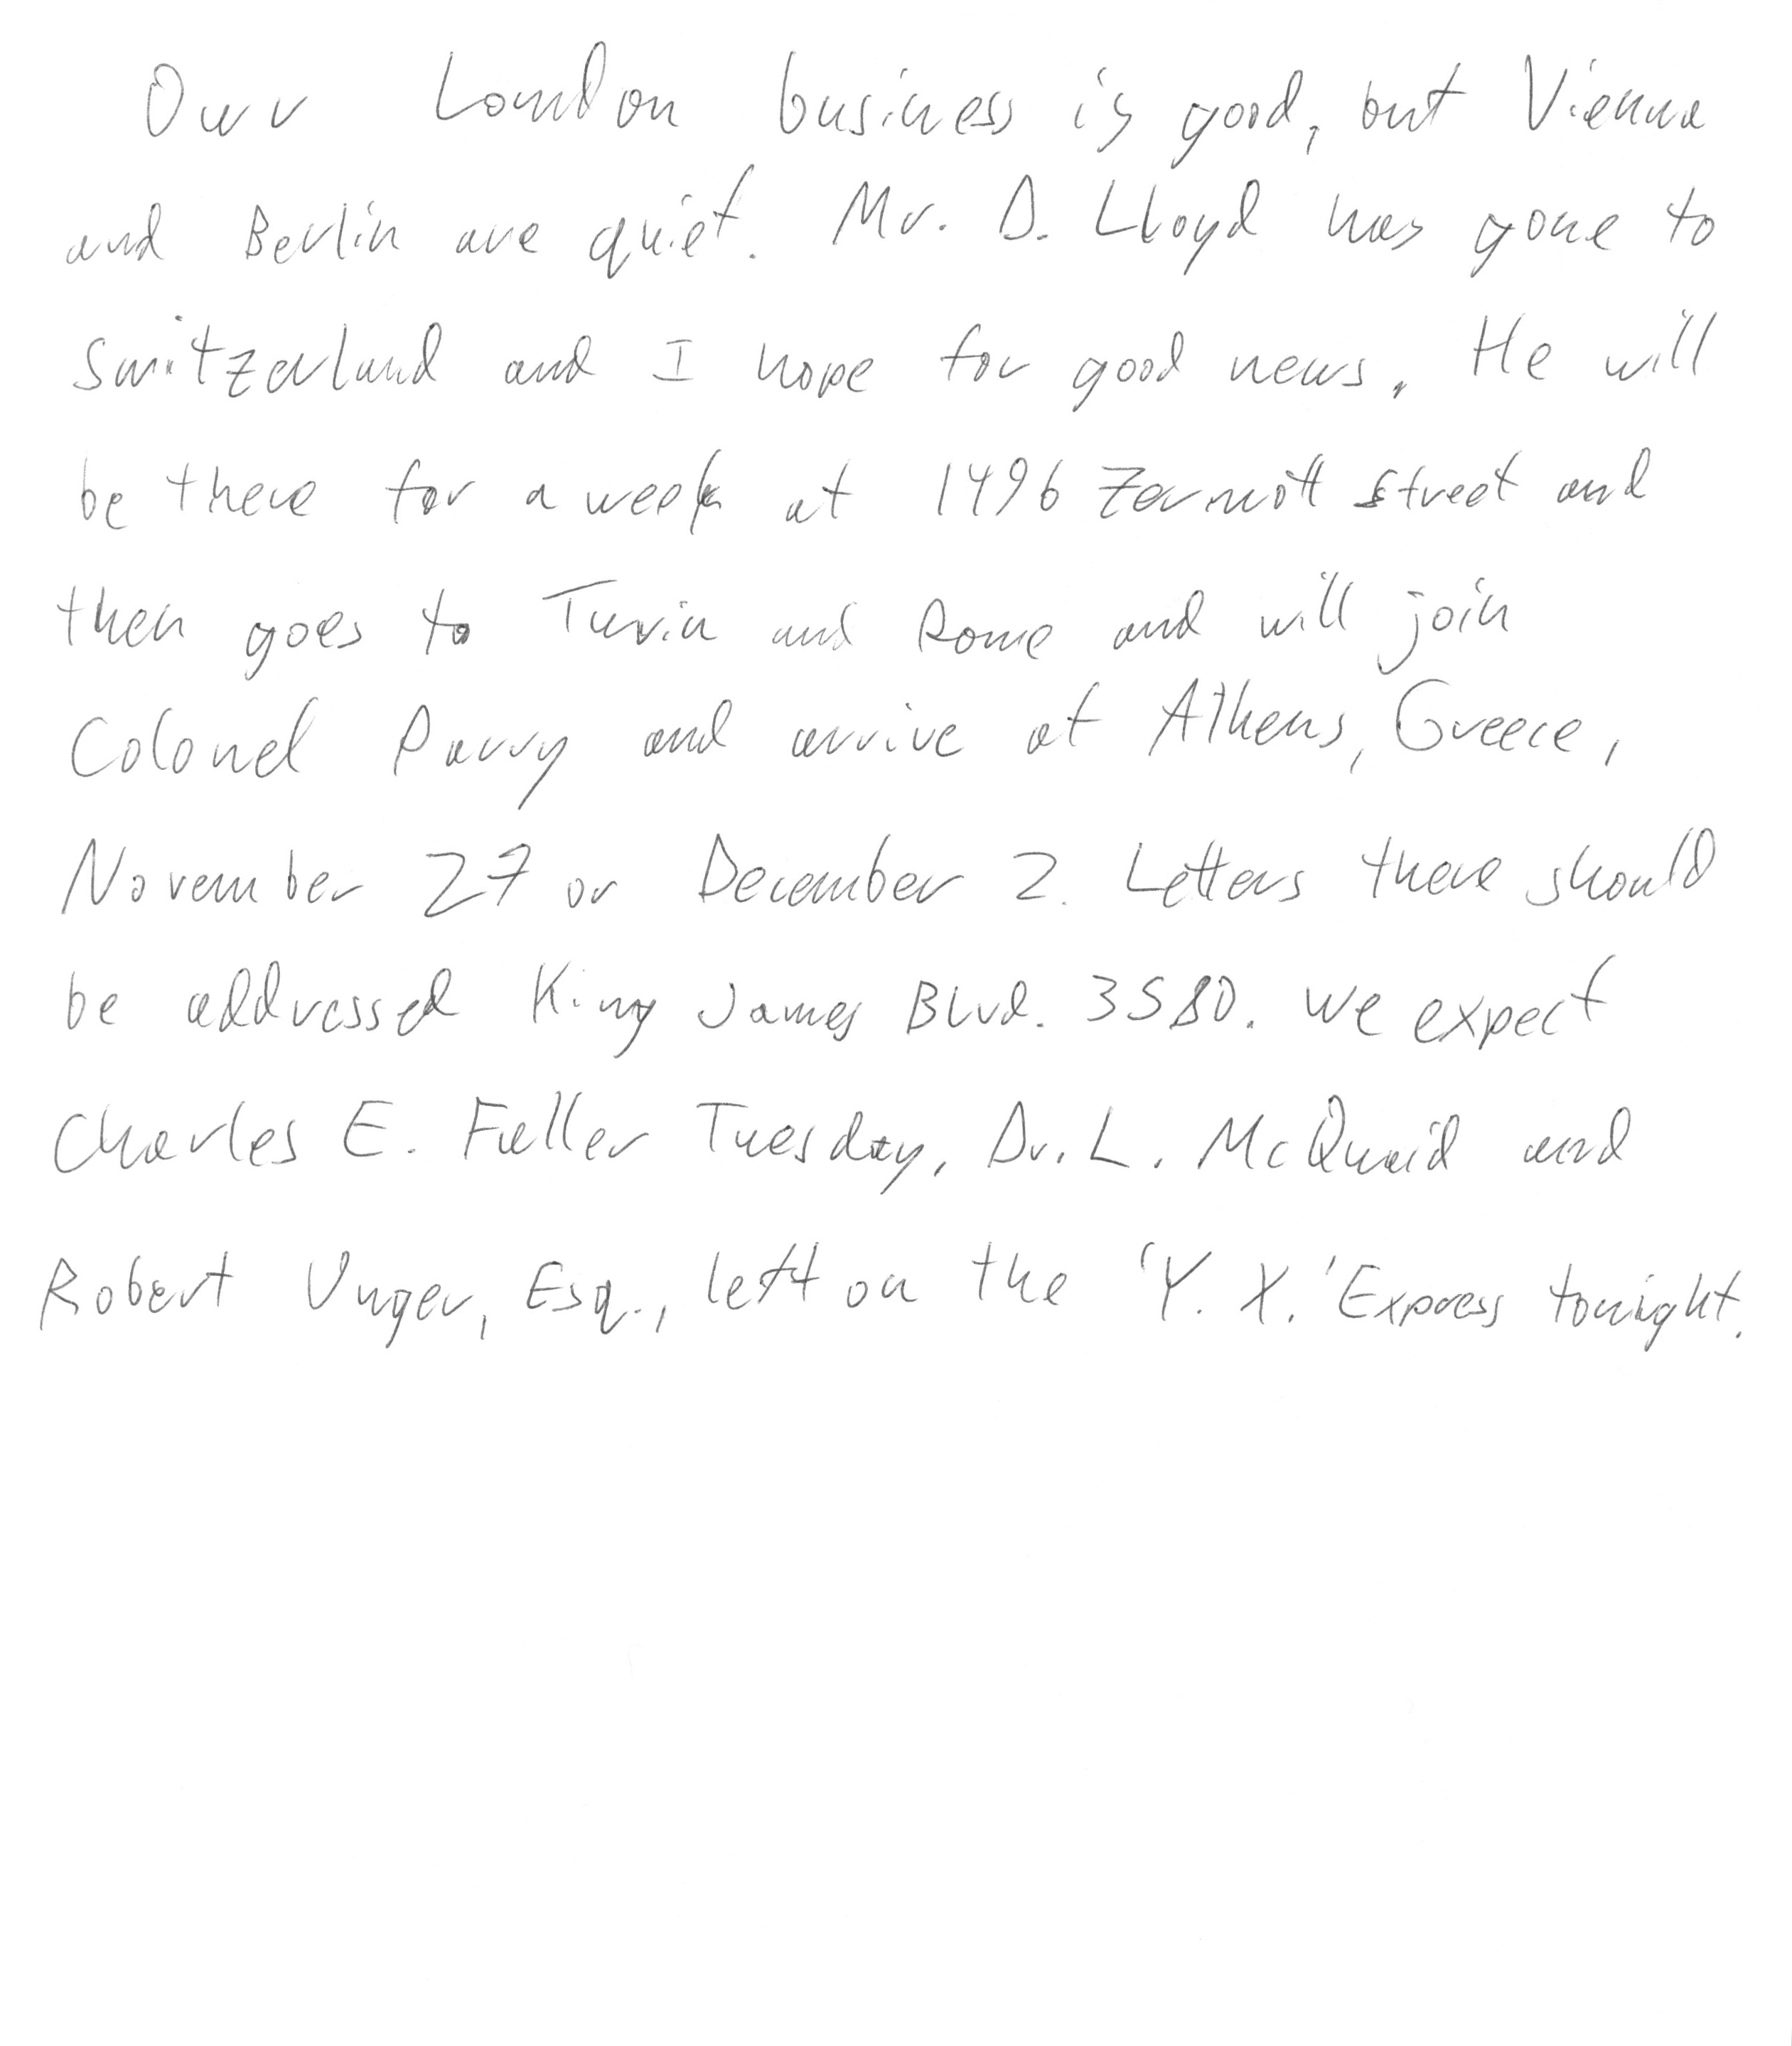 Our London business is good, but Vienna
and Berlin are quiet. Mr. D. Lloyd has gone to
Switzerland and I hope for good news. He will
be there for a week at 1496 Zermott Street and
then goes to Turin and Rome and will join
Colonel Parry and arrive at Athens, Greece,
November 27 or December 2. Letters there should
be addressed King James Blvd. 3580. We expect
Charles E. Fuller Tuesday, Dr. L. McQuaid and
Robert Unger, Esq., left on the 'Y. X.' Express tonight.